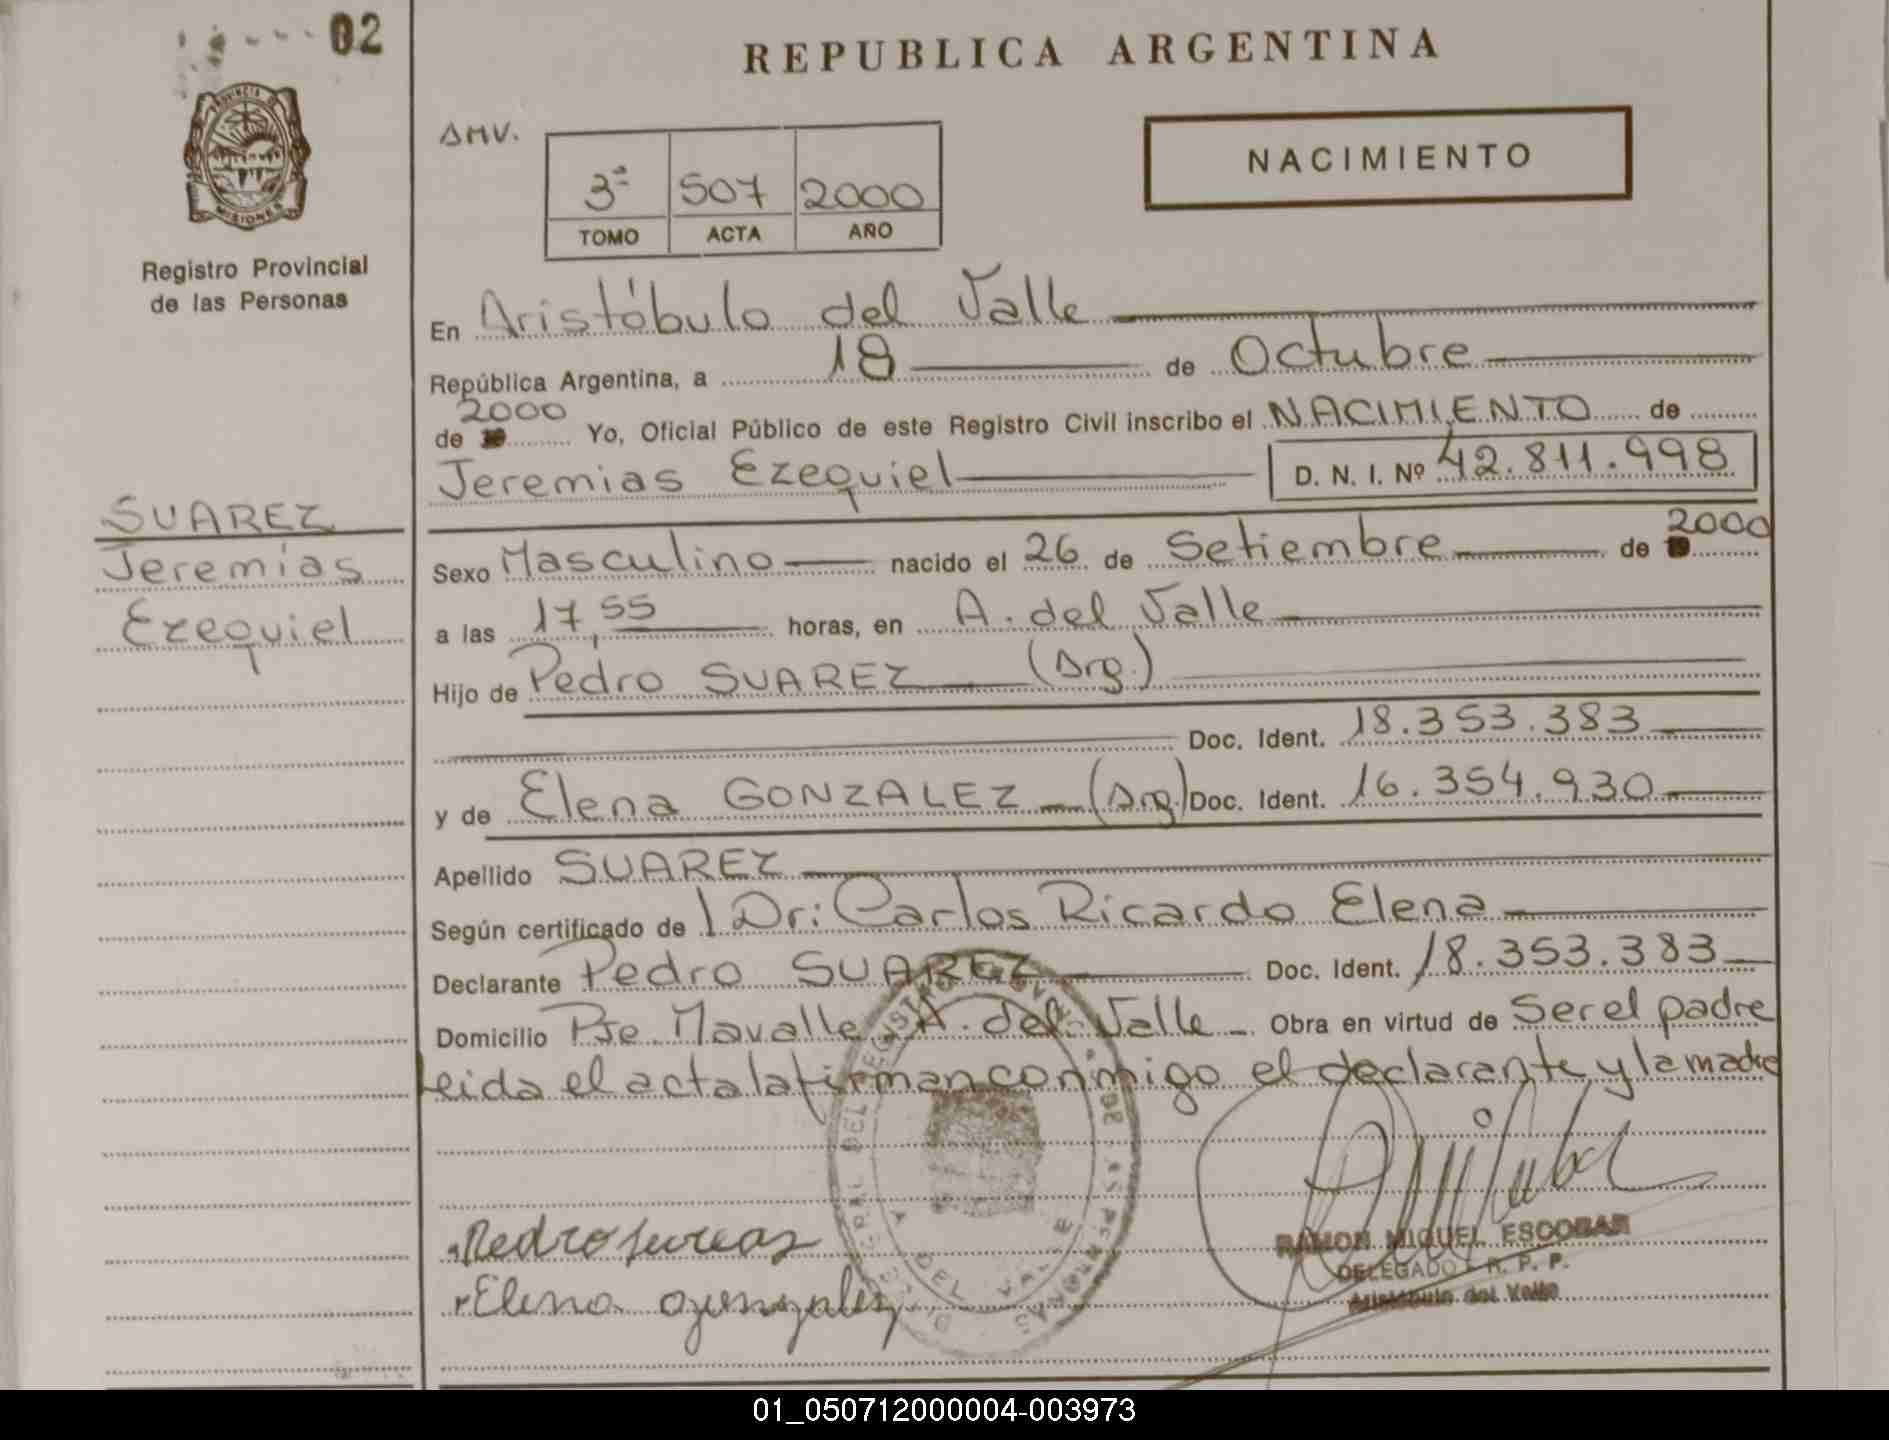 02
PROVINCIA DE
MISIONES
Registro Provincial
de las Personas
SUAREZ
Jeremías
Ezequiel
REPUBLICA ARGENTINA
AMV.
3ª 507 2000
TOMO ACTA AÑO
NACIMIENTO
En Aristóbulo del Valle
República Argentina, a 18 de Octubre
2000
de Yo, Oficial Público de este Registro Civil inscribo el NACIMIENTO de
Jeremias Ezequiel D. N. I. Nº 42.811.998
Sexo Masculino nacido el 26 de Setiembre de 2000
a las 17,55 horas, en A. del Valle
Hijo de Pedro SUAREZ (Arg.)
Doc. Ident. 18.353.383
y de Elena GONZALEZ (Arg.) Doc. Ident. 16.354.930
Apellido SUAREZ
Según certificado de Dr: Carlos Ricardo Elena
Declarante Pedro SUAREZ Doc. Ident. 18.353.383
Domicilio Pje. Mavalle A. del Valle Obra en virtud de Ser el padre
Leida el acta la firman conmigo el declarante y la madre
DEL REGISTRO
PERSONAS
A. DEL VALLE
RAMON MIGUEL ESCOBAR
DELEGADO R. P. P.
Aristóbulo del Valle
Elena
01_050712000004-003973